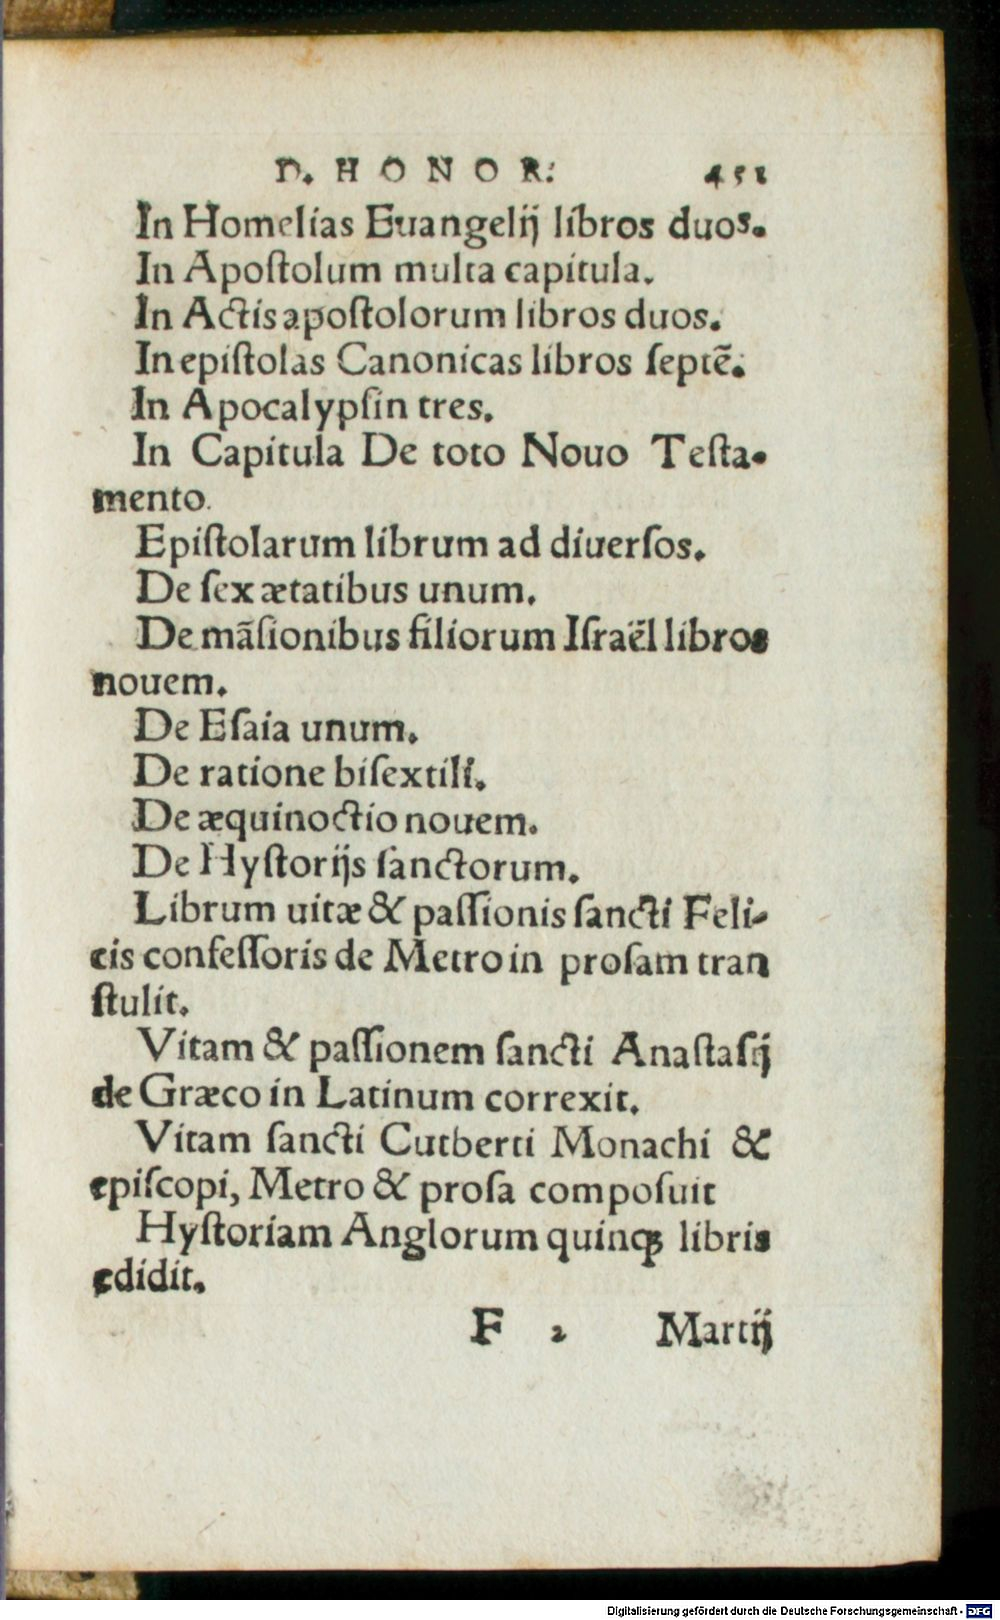 D. HONOR. 451
In Homelias Euangelij libros duos.
In Apoſtolum multa capitula.
In Actis apoſtolorum libros duos.
In epiſtolas Canonicas libros ſeptē.
In Apocalypſin tres.
In Capitula De toto Nouo Teſta-
mento.
Epiſtolarum librum ad diuerſos.
De ſex ætatibus unum.
De mãſionibus filiorum Iſraël libros
nouem.
De Eſaia unum.
De ratione biſextili.
De æquinoctio nouem.
De Hyſtorijs ſanctorum.
Librum uitæ & paſſionis ſancti Feli-
cis confeſſoris de Metro in proſam tran
ſtulit.
Vitam & paſſionem ſancti Anaſtaſij
de Græco in Latinum correxit.
Vitam ſancti Cutberti Monachi &
epiſcopi, Metro & proſa compoſuit
Hyſtoriam Anglorum quinqȝ libris
edidit.
F 2 Martij
Digitalisierung gefördert durch die Deutsche Forschungsgemeinschaft - DFG